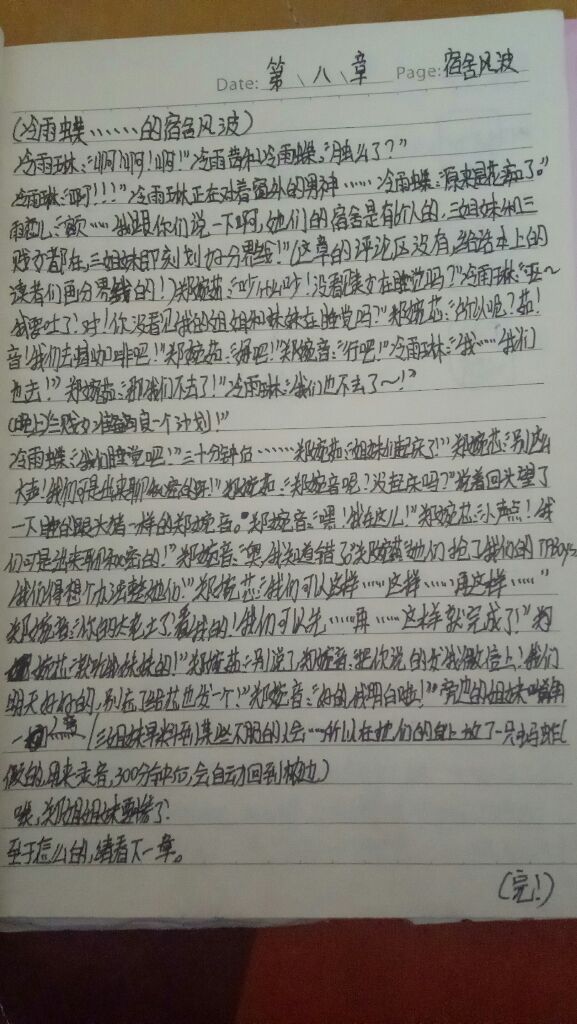 Date: 第\八\章 Page: 宿舍风波
(冷雨蝶……的宿舍风波)
冷雨琳:"啊!啊!啊!"冷雨昔和冷雨蝶:"肿么了?"
冷雨琳:"啊!!!"冷雨琳正在对着窗外的男神……冷雨蝶:"原来是花痴了。"
雨:"额……我跟你们说一下啊,她们的宿舍是有6个人的,三姐妹和三
贱女都在,三姐妹即刻划好分界线!"(这章的评论区没有,给活本上的
读者们画分界线的!)郑婉茹:"吵什么吵!没看见美女在睡觉吗?"冷雨琳:"呕~
我要吐了!对!你没看见我的姐姐和妹妹在睡觉吗?"郑婉芯:"你以呢?茹!
音!我们去喝咖啡吧!"郑婉茹:"好吧!"郑婉音:"行吧!"冷雨琳:"我……我们
也去!"郑婉茹:"那我们不去了!"冷雨琳:"我们也不去了~!"
(晚上)三贱女准备商良一个计划!"
冷雨蝶:"我们睡觉吧!"三十分钟后……郑婉茹:"姐妹们起床了!"郑婉芯:"别这么
大声!我们可是出来聊秘密的呀!"郑婉茹:"郑婉音呢?没起床吗?"说着回头望了
一下睡的跟头猪一样的郑婉音。郑婉音:"喂!我在这儿!"郑婉芯:"小声点!我
们可是出来聊秘密的!"郑婉音:"奥,我知道错了"郑婉茹:"她们抢了我们的TFBoys
,我们得想个办法整她们!"郑婉芯:"我们可以这样……这样……再这样……"
郑婉音:"你的太老土了,看我的!我们可以先……再……这样就完成了!"郑
婉芯:"欺妹妹的!"郑婉茹:"别说了,郑婉音,把你说的发我微信上!我们
明天好好的,别忘了给芯也发一个!"郑婉音:"好的我明白啦!"旁边的姐妹嘴角
一点(三姐妹早料到某些不服的人会……所以在她们的身上放了一只蚂蚱(
假的,用来录音,300分钟后,会自动回到枕边)
唉,郑姐姐妹要惨了?
至于怎么的,请看下一章。
(完!)